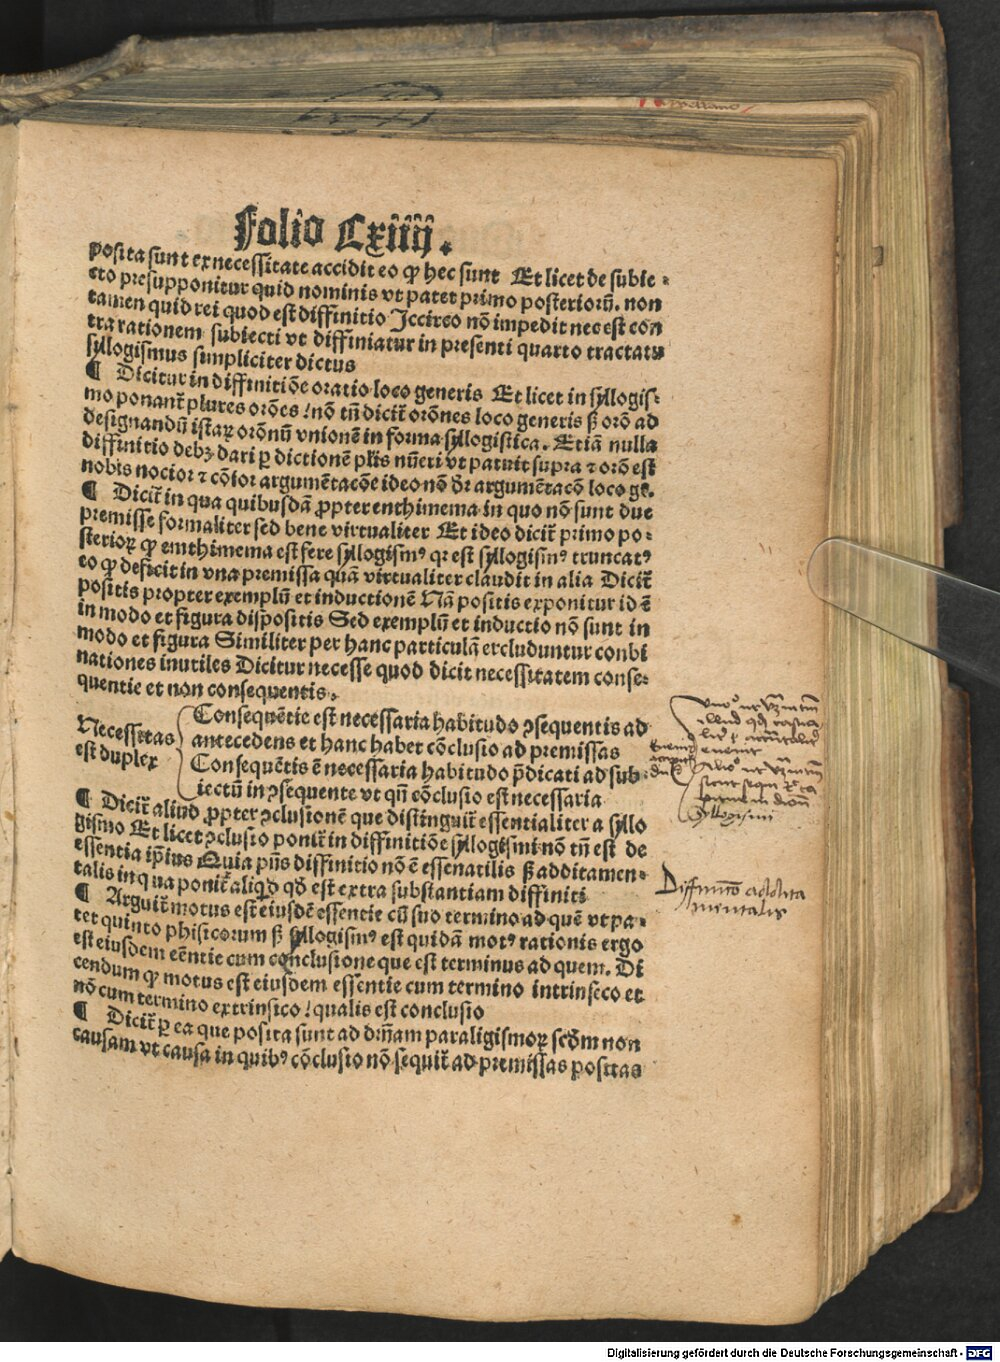 Folio Cxiiij.
posita sunt ex necessitate accidit eo ꝙ hec sunt Et licet de subie-
cto presupponitur quid nominis vt patet primo posterioꝝ. non
tamen quid rei quod est diffinitio Iccirco nō impedit nec est con
tra rationem subiecti vt diffiniatur in presenti quarto tractatu
syllogismus simpliciter dictus
¶ Dicitur in diffinitiōe oratio loco generis Et licet in syllogis-
mo ponant̃ plures orōes / nō tn̄ dicit̃ orōnes loco generis ß orō ad
designandū istaꝝ orōnū vnionē in forma syllogistica. Etiā nulla
diffinitio debꝫ dari ꝑ dictionē pl̃is nūeri vt patuit supra ⁊ orō est
nobis nocior ⁊ cōior argumētacōe ideo nō d̃r argumētacō loco ge.
¶ Dicit̃ in qua quibusdā ꝓpter enthimema in quo nō sunt due
premisse formaliter sed bene virtualiter Et ideo dicit̃ primo po-
sterioꝝ ꝙ emthimema est fere syllogismꝰ qr est syllogismꝰ truncatꝰ
eo ꝙ deficit in vna premissa quā virtualiter claudit in alia Dicit̃
positis propter exemplū et inductionē Nā positis exponitur id ē
in modo et figura dispositis Sed exemplū et inductio nō sunt in
modo et figura Similiter per hanc particulā excluduntur conbi
nationes inutiles Dicitur necesse quod dicit necessitatem conse-
quentie et non consequentis.
Necessitas
est duplex
Consequētie est necessaria habitudo ꝯsequentis ad
antecedens et hanc habet cōclusio ad premissas
Consequētis ē necessaria habitudo p̄dicati ad sub-
iectū in ꝯsequente vt qn̄ cōclusio est necessaria
¶ Dicit̃ aliud ꝓpter ꝯclusionē que distinguit̃ essentialiter a syllo
gismo Et licet ꝯclusio ponit̃ in diffinitiōe syllogismi nō tn̄ est de
essentia ip̄ius Quia pn̄s diffinitio nō ē essenatilis ß additamen-
talis in qua ponit̃ aliqd qd est extra substantiam diffiniti
¶ Arguit̃ motus est eiusdē essentie cū suo termino ad quē vt pa-
tet quinto phisicorum ß syllogismꝰ est quidā motꝰ rationis ergo
est eiusdem eēntie cum conclusione que est terminus ad quem. Di
cendum ꝙ motus est eiusdem essentie cum termino intrinseco et
nō cum termino extrinsico / qualis est conclusio
¶ Dicit̃ ꝑ ea que posita sunt ad dr̄iam paraligismoꝝ scd̄m non
causam vt causa in quibꝰ cōclusio nō sequit̃ ad premissas positas
Diffinitio addita
mentalis
Digitalisierung gefördert durch die Deutsche Forschungsgemeinschaft - DFG